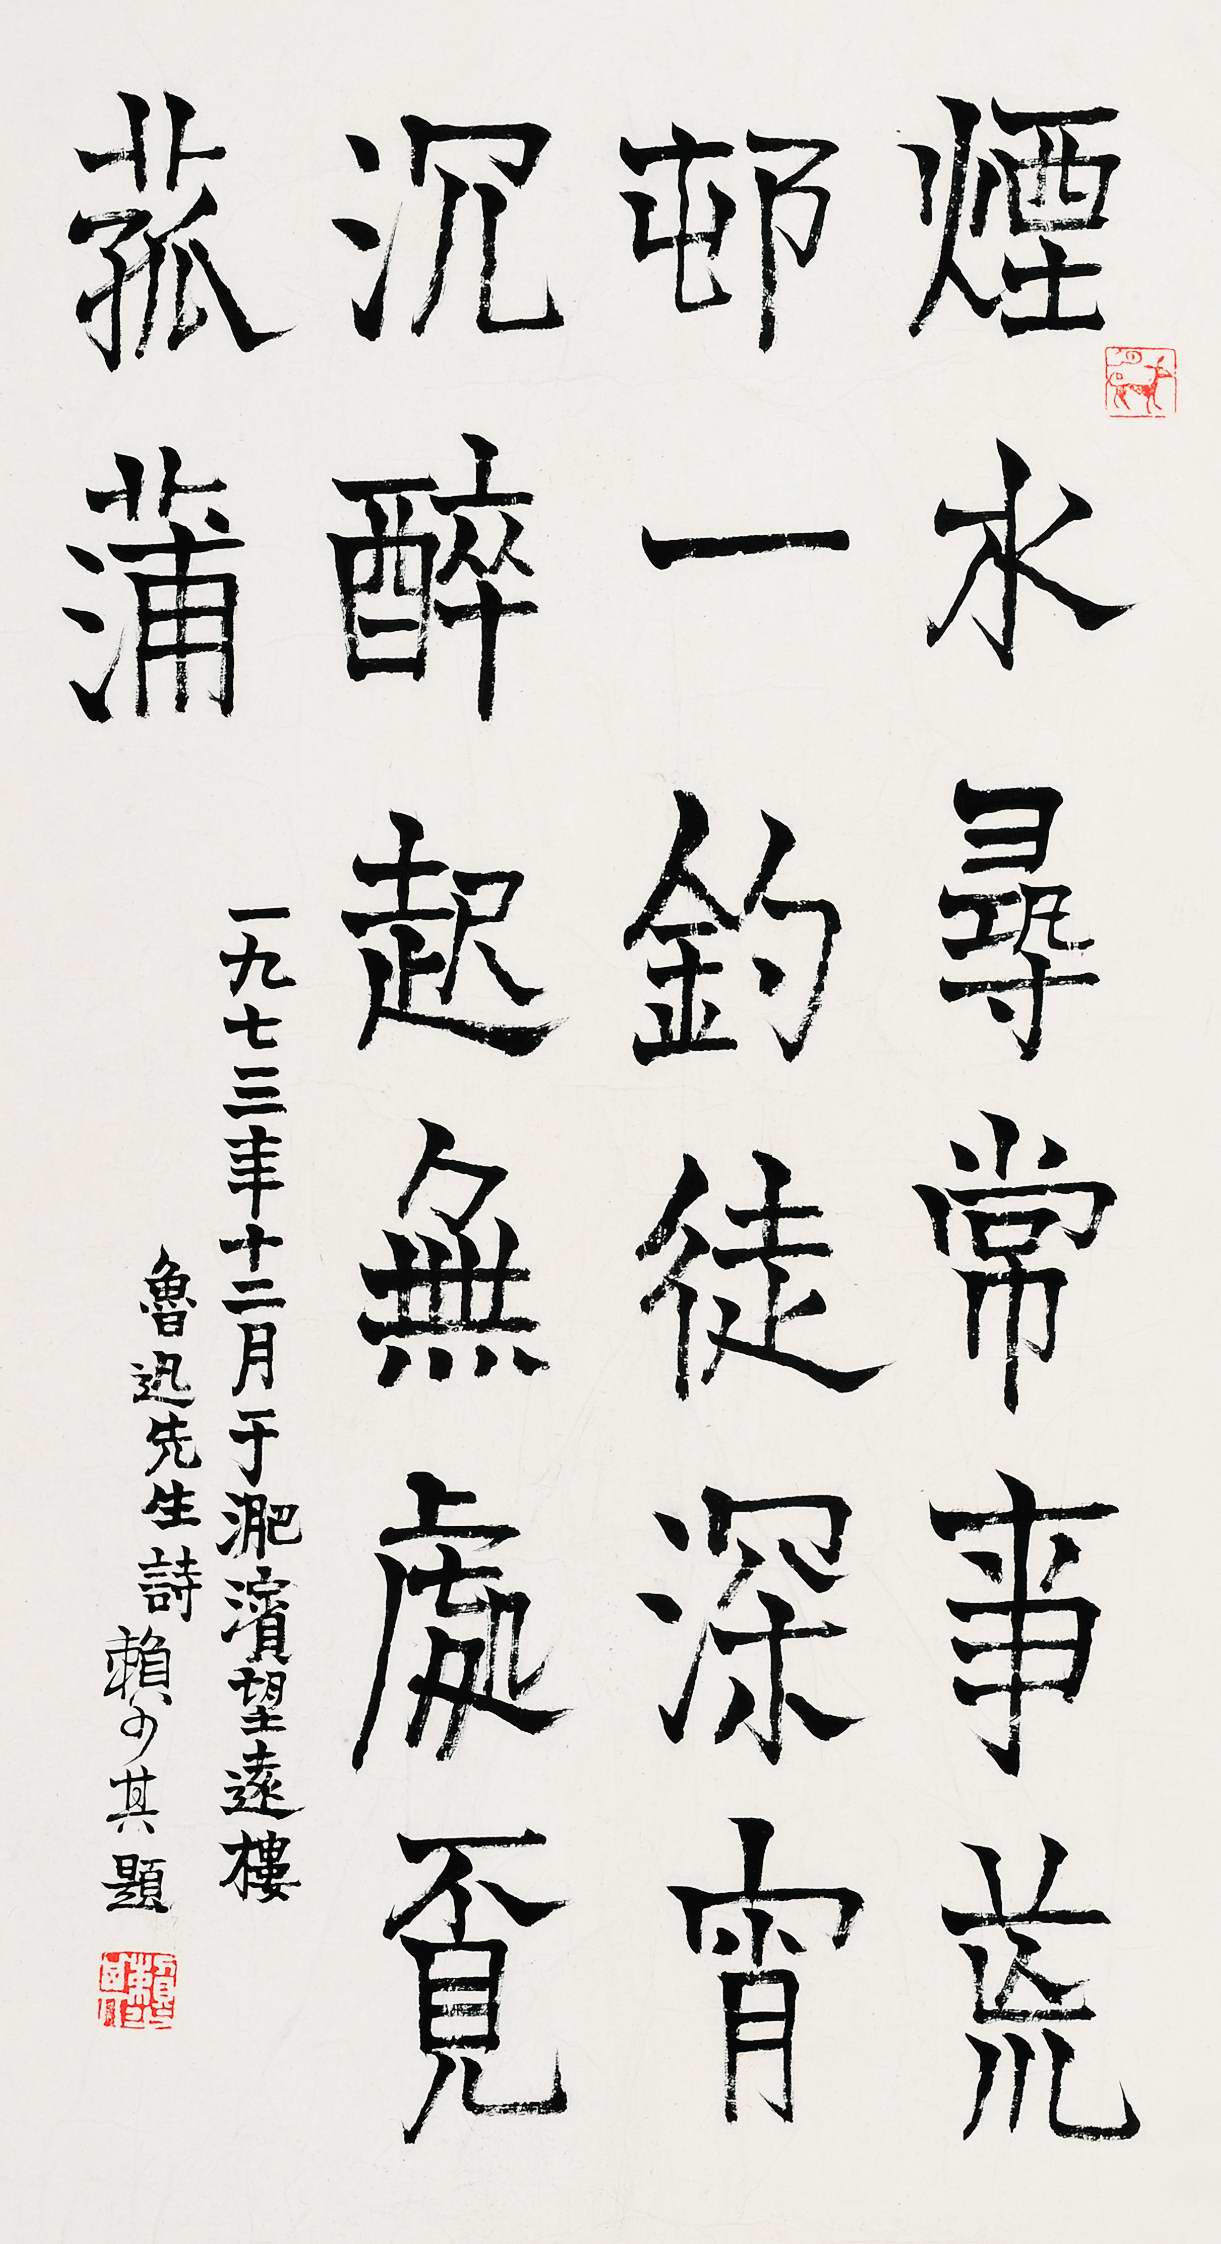 煙水尋常事荒
邨一釣徒深宵
沉醉起無處覔
菰蒲
一九七三年十二月于淝濱望遠樓
魯迅先生詩
賴少其題